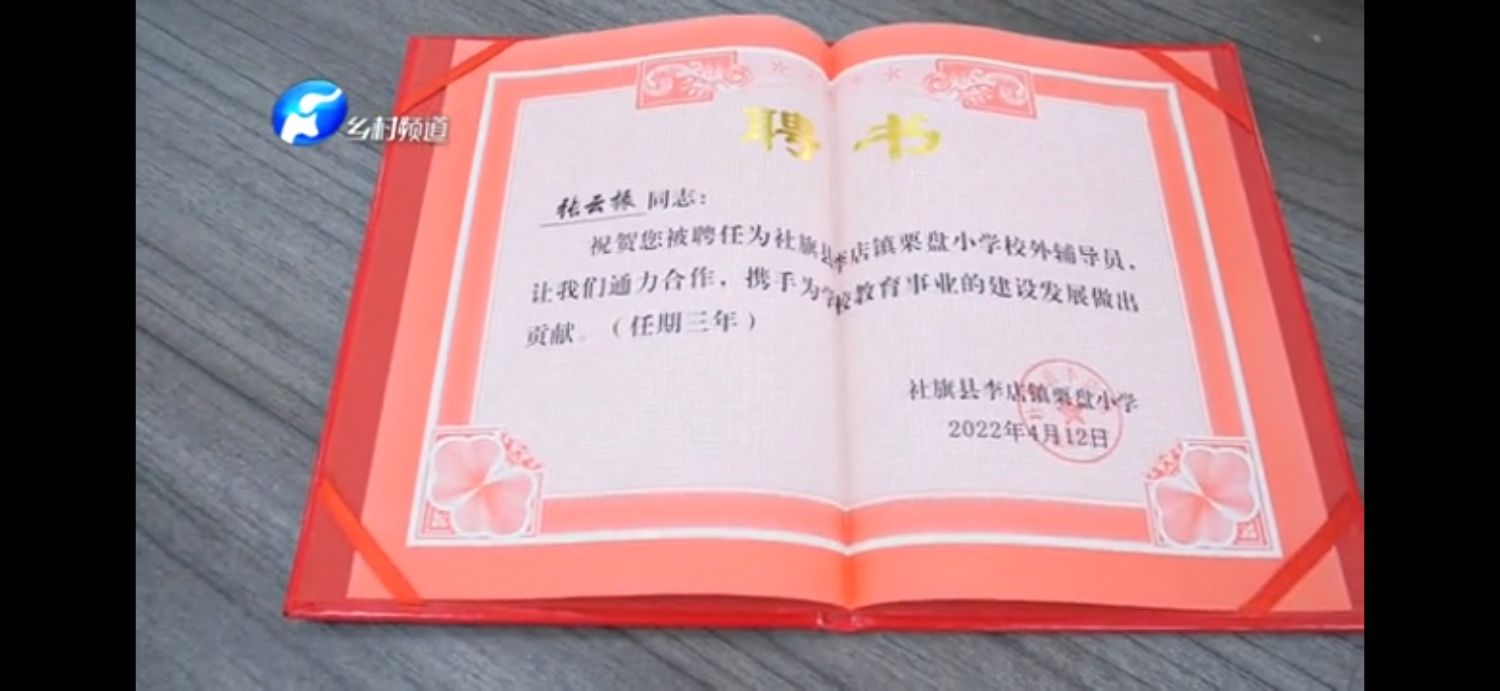 乡村频道
聘书
张云振 同志：
祝贺您被聘任为社旗县李店镇栗盘小学校外辅导员，
让我们通力合作，携手为学校教育事业的建设发展做出
贡献。（任期三年）
社旗县李店镇栗盘小学
2022年4月12日